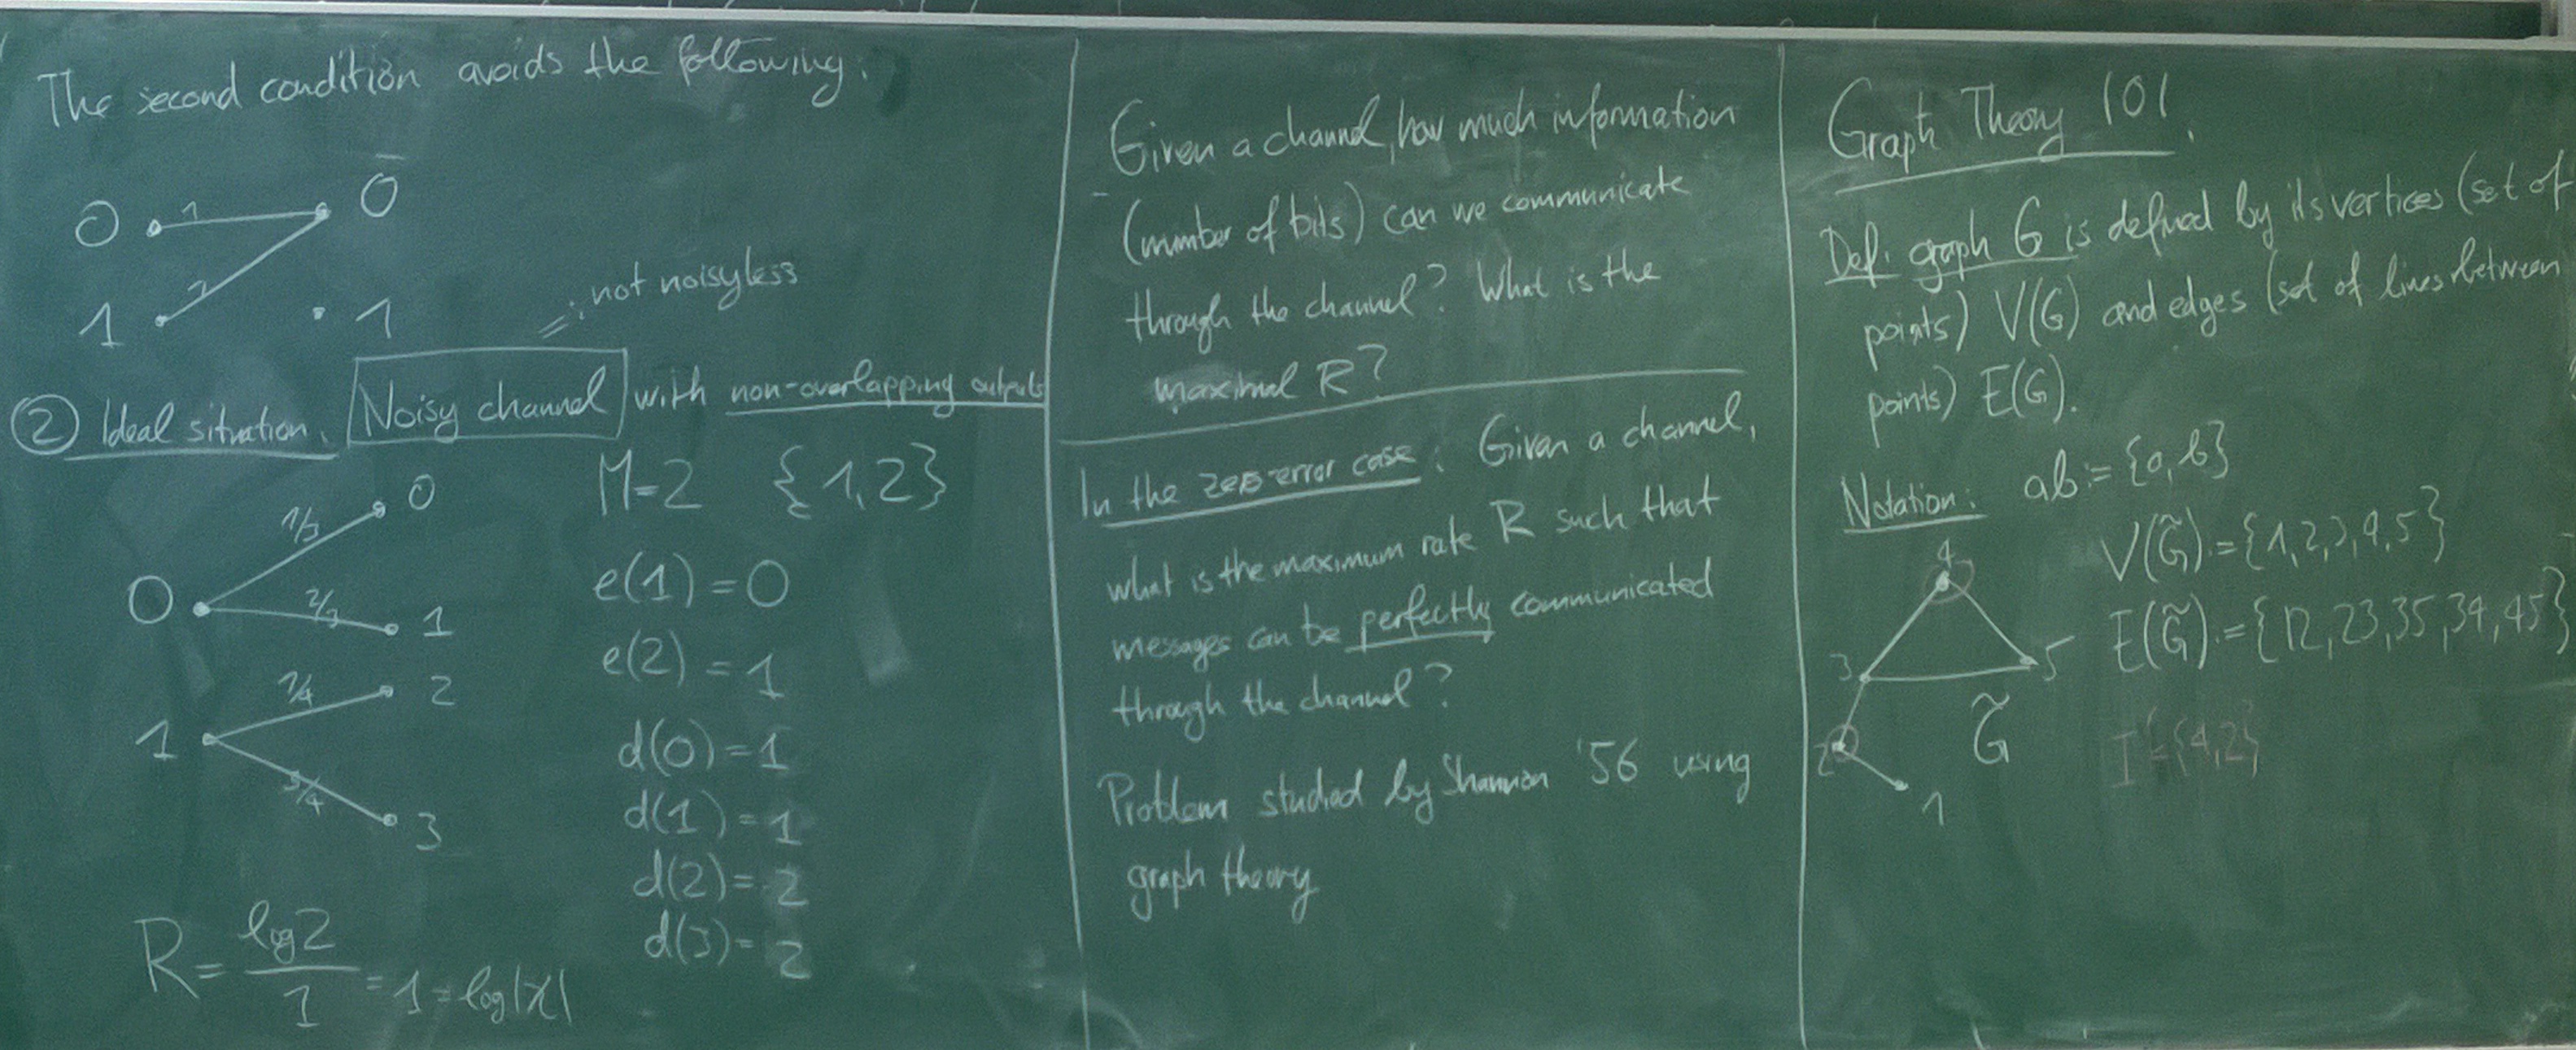 The second condition avoids the following:
0 1 0
1 1 1
= : not noisyless
② Ideal situation. Noisy channel with non-overlapping outputs
M=2 {1,2}
1/3 0
0 2/3 1
1/4 2
1 3/4 3
e(1)=0
e(2)=1
d(0)=1
d(1)=1
d(2)=2
d(3)=2
R = log2/1 = 1 = log|X|
Given a channel, how much information
(number of bits) can we communicate
through the channel? What is the
maximal R?
In the zero-error case: Given a channel,
what is the maximum rate R such that
messages can be perfectly communicated
through the channel?
Problem studied by Shannon '56 using
graph theory
Graph Theory 101.
Def: graph G is defined by its vertices (set of
points) V(G) and edges (set of lines between
points) E(G).
Notation: ab:={a,b}
V(G̃):={1,2,3,4,5}
E(G̃):={12,23,35,34,45}
I={4,2}
4
3 5
G̃
2
1